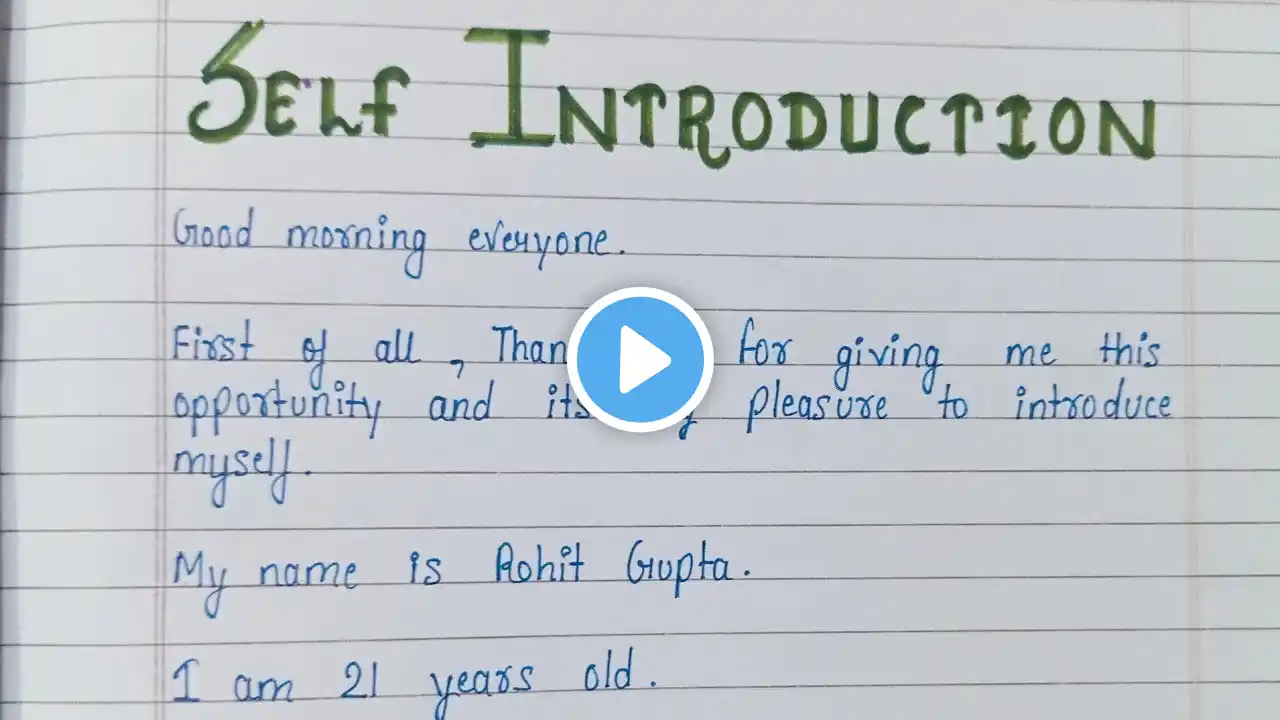 SELF INTRODUCTION
Good morning everyone.
First of all , for giving me this
opportunity and its pleasure to introduce
myself.
My name is Rohit Gupta.
I am 21 years old.